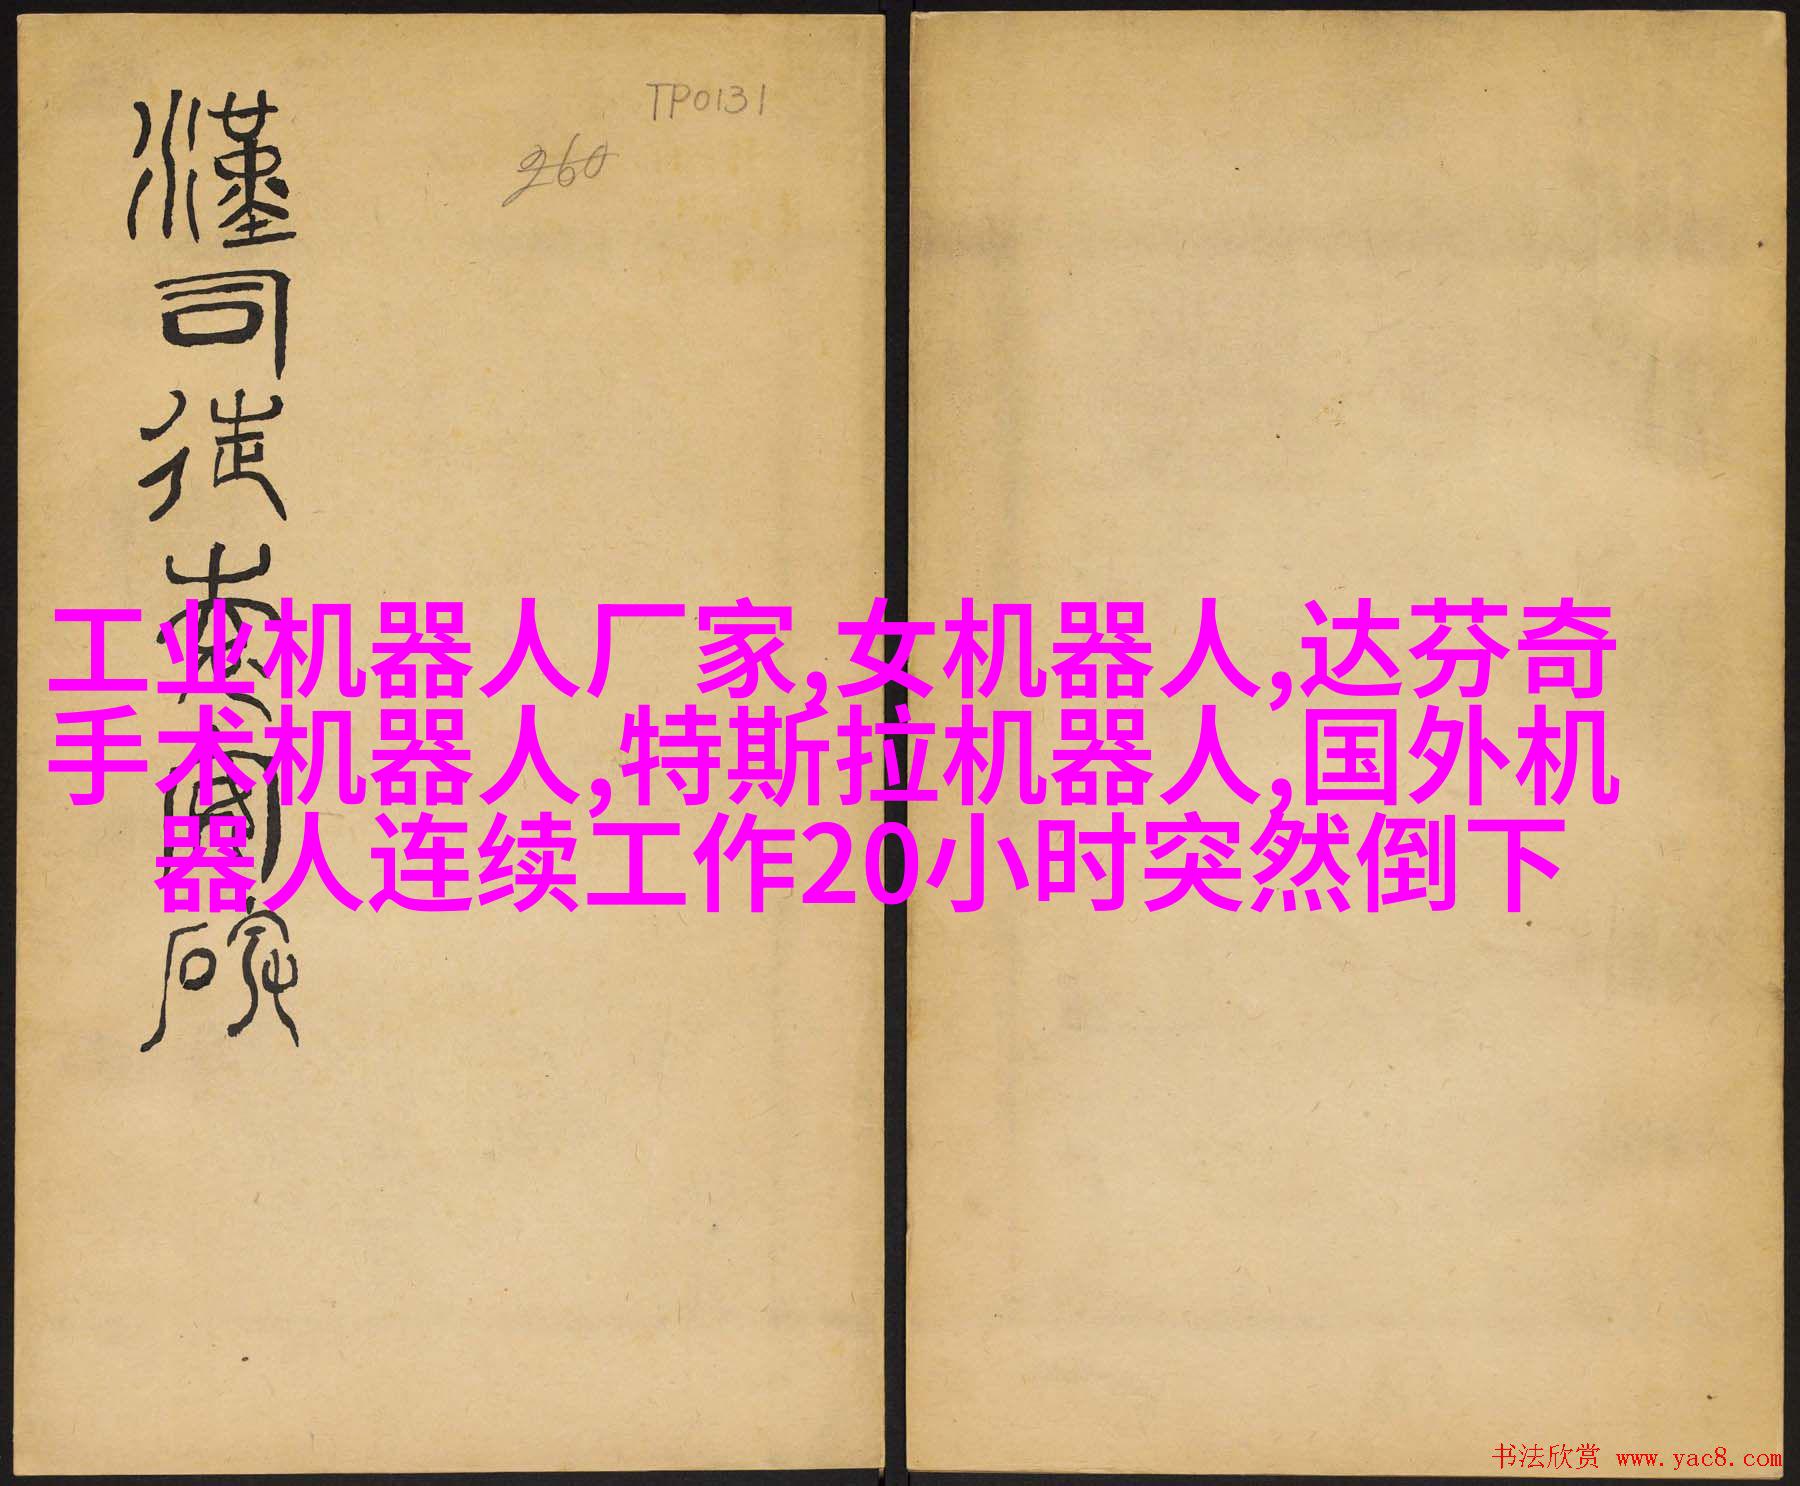 TP0131
260
漢司徒袁敞碑
工业机器人厂家,女机器人,达芬奇
手术机器人,特斯拉机器人,国外机
器人连续工作20小时突然倒下
书法欣赏 www.yac8.com